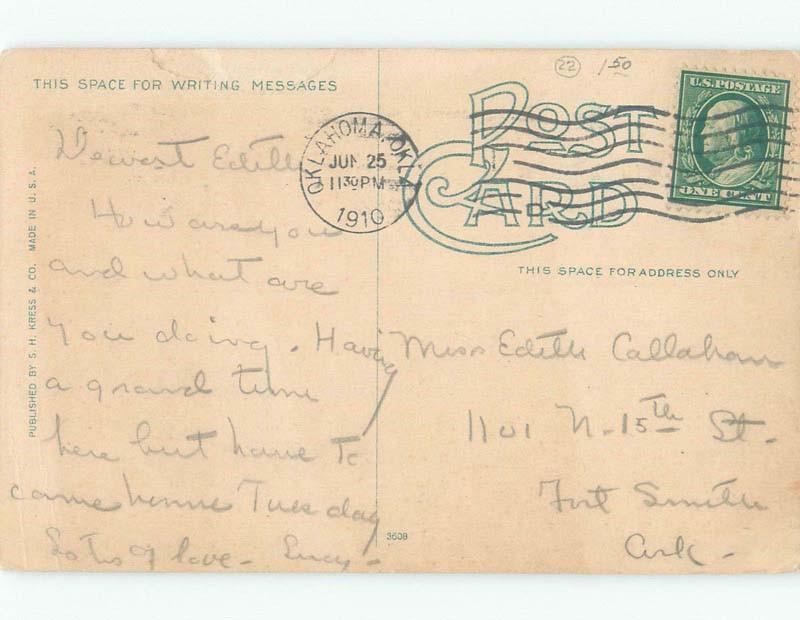 22 1.50
THIS SPACE FOR WRITING MESSAGES
POST CARD
U.S. POSTAGE
ONE CENT
OKLAHOMA, OKLA.
JUN 25
11 30 PM
1910
THIS SPACE FOR ADDRESS ONLY
PUBLISHED BY S. H. KRESS & CO. MADE IN U. S. A.
Dearest Edith
How are you
and what are
you doing. Having
a grand time
here but have to
come home Tuesday
Lots of love - Lucy -
Miss Edith Callahan
1101 N. 15th St.
Fort Smith
Ark -
3608